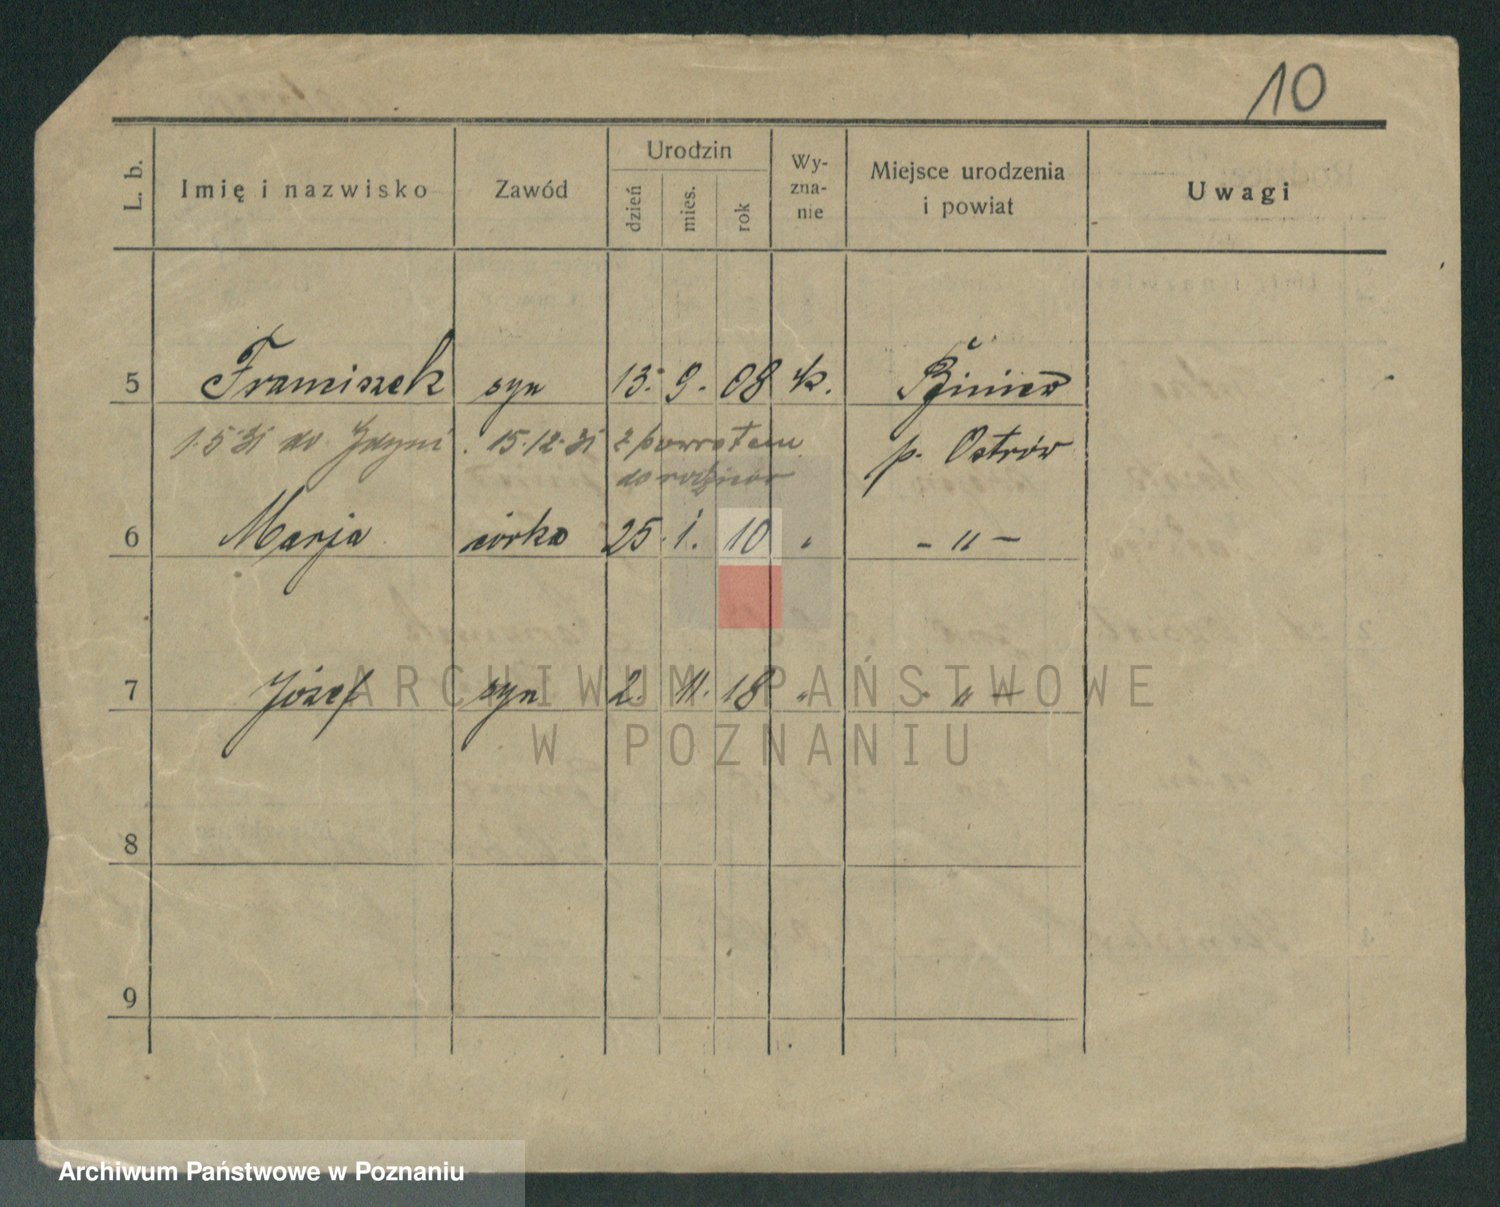 10
L. b. Imię i nazwisko Zawód Urodzin dzień mies. rok Wy-zna-nie Miejsce urodzenia i powiat Uwagi
5 Franciszek syn 13. 9. 08 k.
1.5.31 do Gdyni . 15.12.31 z powrotem p. Ostrów
do rodziców
6 Marja córka 25. 1. 10 " - " -
7 Józef syn 2. 11. 18 " - " -
8
9
ARCHIWUM PAŃSTWOWE
W POZNANIU
Archiwum Państwowe w Poznaniu